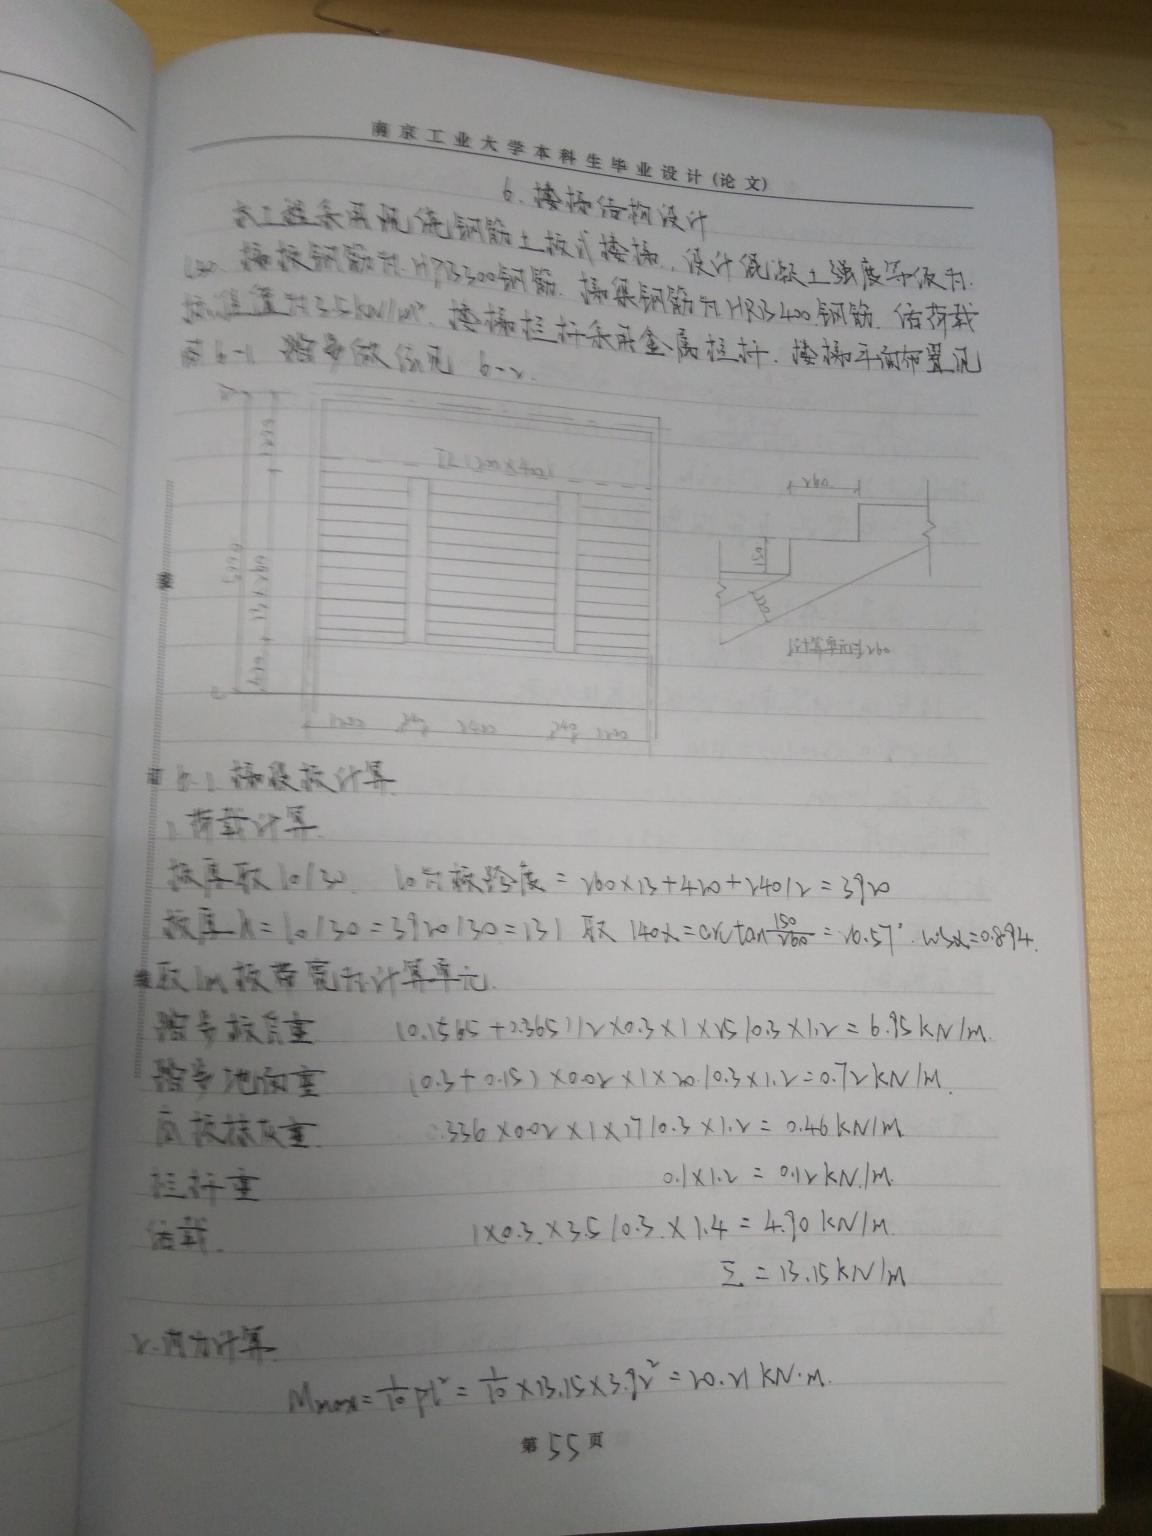 南京工业大学本科生毕业设计(论文)
6. 楼梯结构设计
本工程采用现浇钢筋土板式楼梯,设计混凝土强度等级为
C30. 梯板钢筋为HPB300钢筋. 梯梁钢筋为HRB400钢筋. 活荷载
标准值为3.5kN/m². 楼梯栏杆采用金属栏杆. 楼梯平面布置见
图6-1 踏步做法见 6-2.
TL1(200×400)
260
150
计算单元宽260
1200 240 2400 240 1200
6.1. 梯段板计算
1. 荷载计算.
板厚取l0/30. l0为板跨度 = 260×13+420+240/2 = 3920
板厚h = l0/30 = 3920/30 = 131 取 140 α = arctan 150/260 = 26.57°. cosα=0.894.
取1m板带宽为计算单元.
踏步板自重 (0.1565+0.365)/2×0.3×1×25/0.3×1.2 = 6.95 kN/m.
踏步地面重 (0.3+0.15)×0.02×1×20/0.3×1.2=0.72 kN/m.
底板抹灰重. 0.336×0.02×1×17/0.3×1.2 = 0.46 kN/m.
栏杆重 0.1×1.2 = 0.12 kN/m.
活载. 1×0.3×3.5/0.3×1.4 = 4.90 kN/m.
Σ = 13.15 kN/m
2. 内力计算.
Mmax = 1/10 pl² = 1/10 ×13.15×3.92² = 20.21 kN·m.
第 55 页